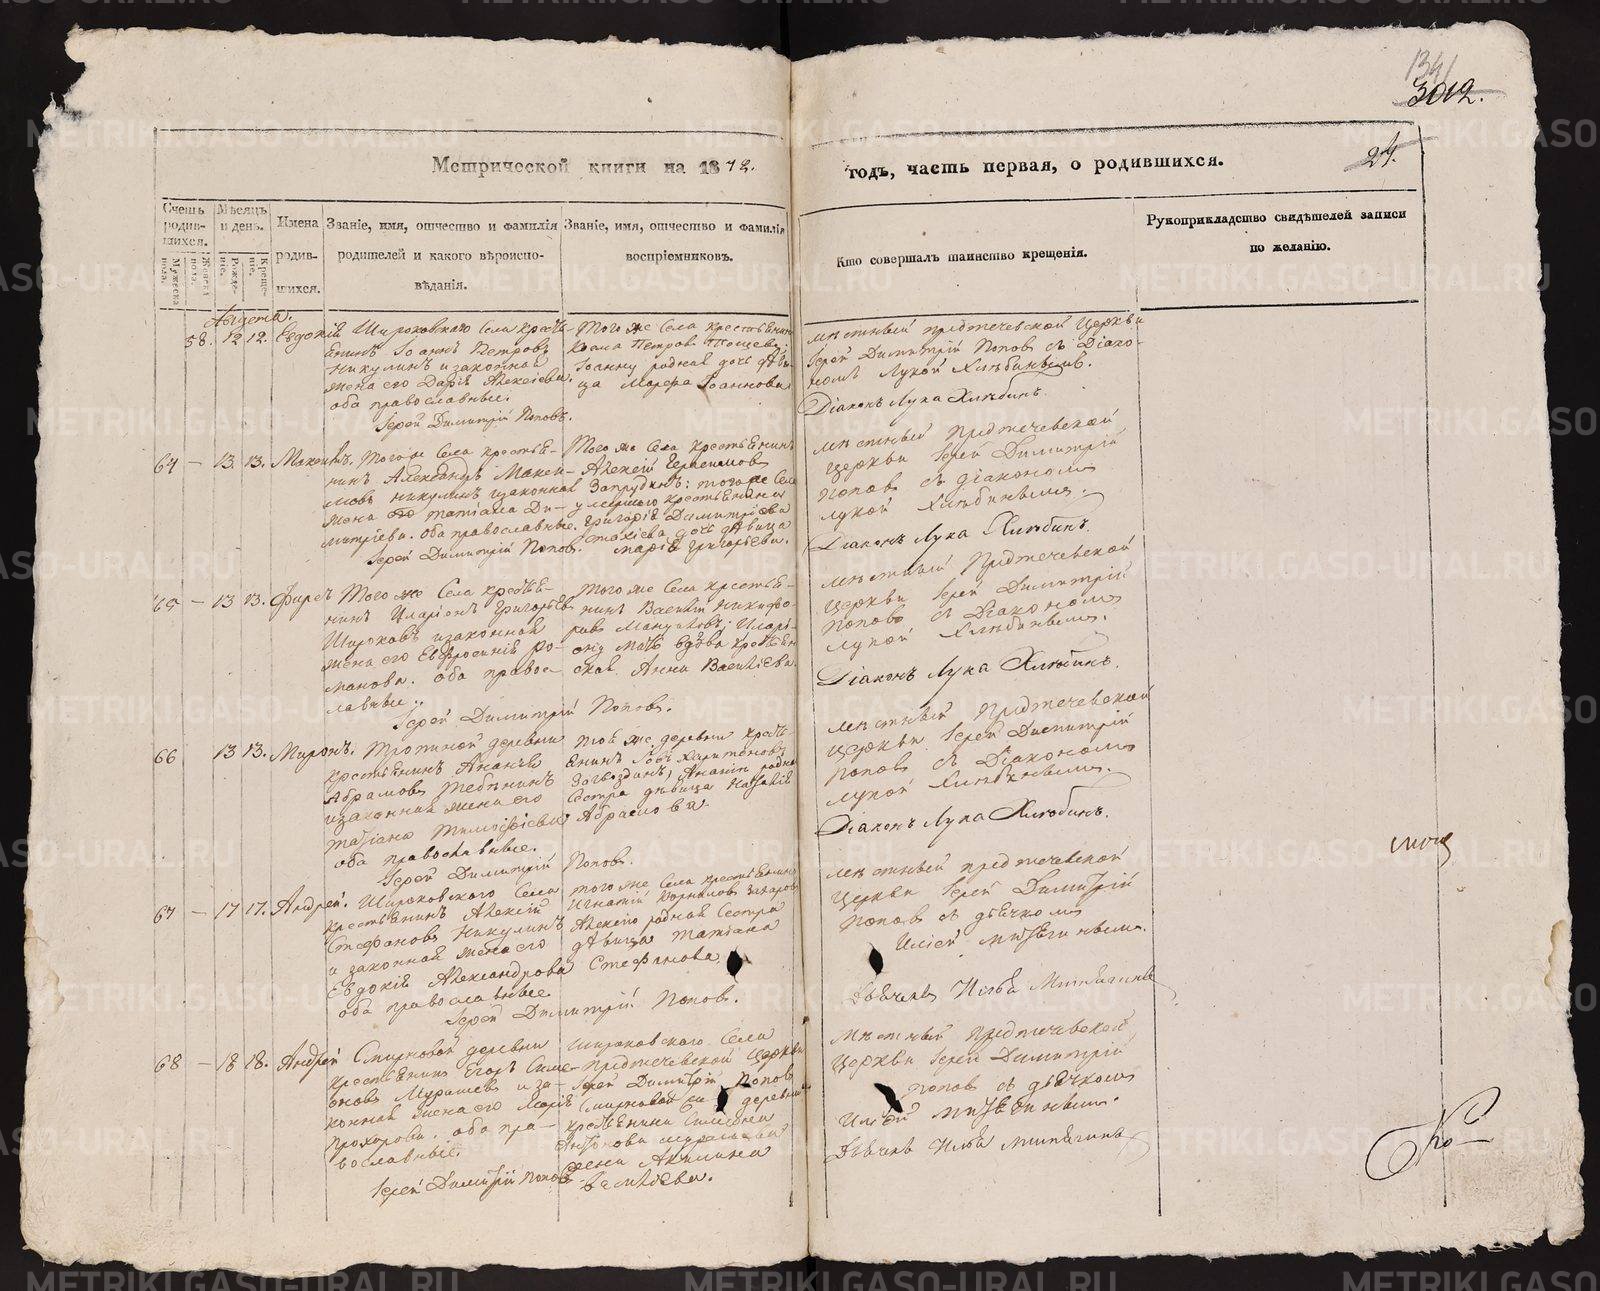 1341
3012.
Метрической книги на 1872.
годъ, часть первая, о родившихся.
24.
Счетъ родив-шихся.
Мужеска пола.
Женска пола.
Мѣсяцъ и день.
Рожде-нія.
Креще-нія.
Имена родив-шихся.
Званіе, имя, отчество и фамилія родителей и какого вѣроиспо-вѣданія.
Званіе, имя, отчество и фамилія воспріемниковъ.
Кто совершалъ таинство крещенія.
Рукоприкладство свидѣтелей записи по желанію.
Августа.
58. 12 12. Евдокія
Широковскаго Села кресть-
янинъ Іоаннъ Петровъ
Никулинъ и законная
жена его Дарія Алексіева.
оба православные.
Іерей Димитрій Поповъ.
Того же Села крестьянинъ
Козма Петровъ
Іоанну родная дочь дѣви-
ца Марѳа Іоаннова
мѣстный предтечевской Церкви
Іерей Димитрій Поповъ съ Діако-
номъ Лукой Хлѣбинымъ.
Діаконъ Лука Хлѣбинъ.
64 – 13. 13. Максимъ.
Того же Села крестья-
нинъ Александръ Макси-
мовъ Никулинъ и законная
жена его Татіана Ди-
митріева. оба православные.
Іерей Димитрій Поповъ.
Того же Села крестьянинъ
Алексій Герасимовъ
Запрудинъ; того же Села
умершаго крестьянина
Григорія Димитріева
дочь дѣвица
Марія Григорьева.
мѣстный предтечевской
Церкви Іерей Димитрій
Поповъ съ Діакономъ
Лукой Хлѣбинымъ.
Діаконъ Лука Хлѣбинъ.
65 – 13 13. Фирсъ
Того же Села крестья-
нинъ Иларіонъ Григорьевъ
Широковъ и законная
жена его Евфросинія Ро-
манова. оба право-
славные.
Іерей Димитрій Поповъ.
Того же Села крестья-
нинъ Василій Никифо-
ровъ; Иларі-
ону мать вдова крестьян-
ская Анна Василіева.
мѣстный Предтечевской
Церкви Іерей Димитрій
Поповъ съ Діакономъ
Лукой Хлѣбинымъ.
Діаконъ Лука Хлѣбинъ.
66 13 13. Миронъ.
деревни
крестьянинъ Ананія
Абрамовъ
и законная жена его
Татіана Тимофіева
оба православные.
Іерей Димитрій Поповъ.
той же деревни кресть-
янинъ Іовъ Харитоновъ
Загвоздинъ, Ананіи родная
Сестра дѣвица Наталія
Абрамова
мѣстный Предтечевской
Церкви Іерей Димитрій
Поповъ съ Діакономъ
Лукой Хлѣбинымъ.
Діаконъ Лука Хлѣбинъ.
67 – 17 17. Андрей.
Широковскаго Села
крестьянинъ Алексій
Стефановъ Никулинъ
и законная жена его
Евдокія Александрова
оба православные
Іерей Димитрій Поповъ.
того же Села крестьянинъ
Игнатій Корниловъ Захаровъ
Алексію родная Сестра
дѣвица Татіана
Стефанова.
мѣстный предтечевской
Церкви Іерей Димитрій
Поповъ съ дьячкомъ
68 – 18 18. Андрей
Смирновой деревни
крестьянинъ Егоръ Симе-
оновъ Мурашевъ и за-
конная жена его Марія
Прохорова. оба пра-
вославные.
Іерей Димитрій Поповъ
Широковскаго Села
Предтечевской Церкви
Іерей Димитрій Поповъ
Смирновой деревни
жена Акилина
Василіева.
мѣстный Предтечевской
Церкви Іерей Димитрій
Поповъ съ дьячкомъ
METRIKI.GASO-URAL.RU